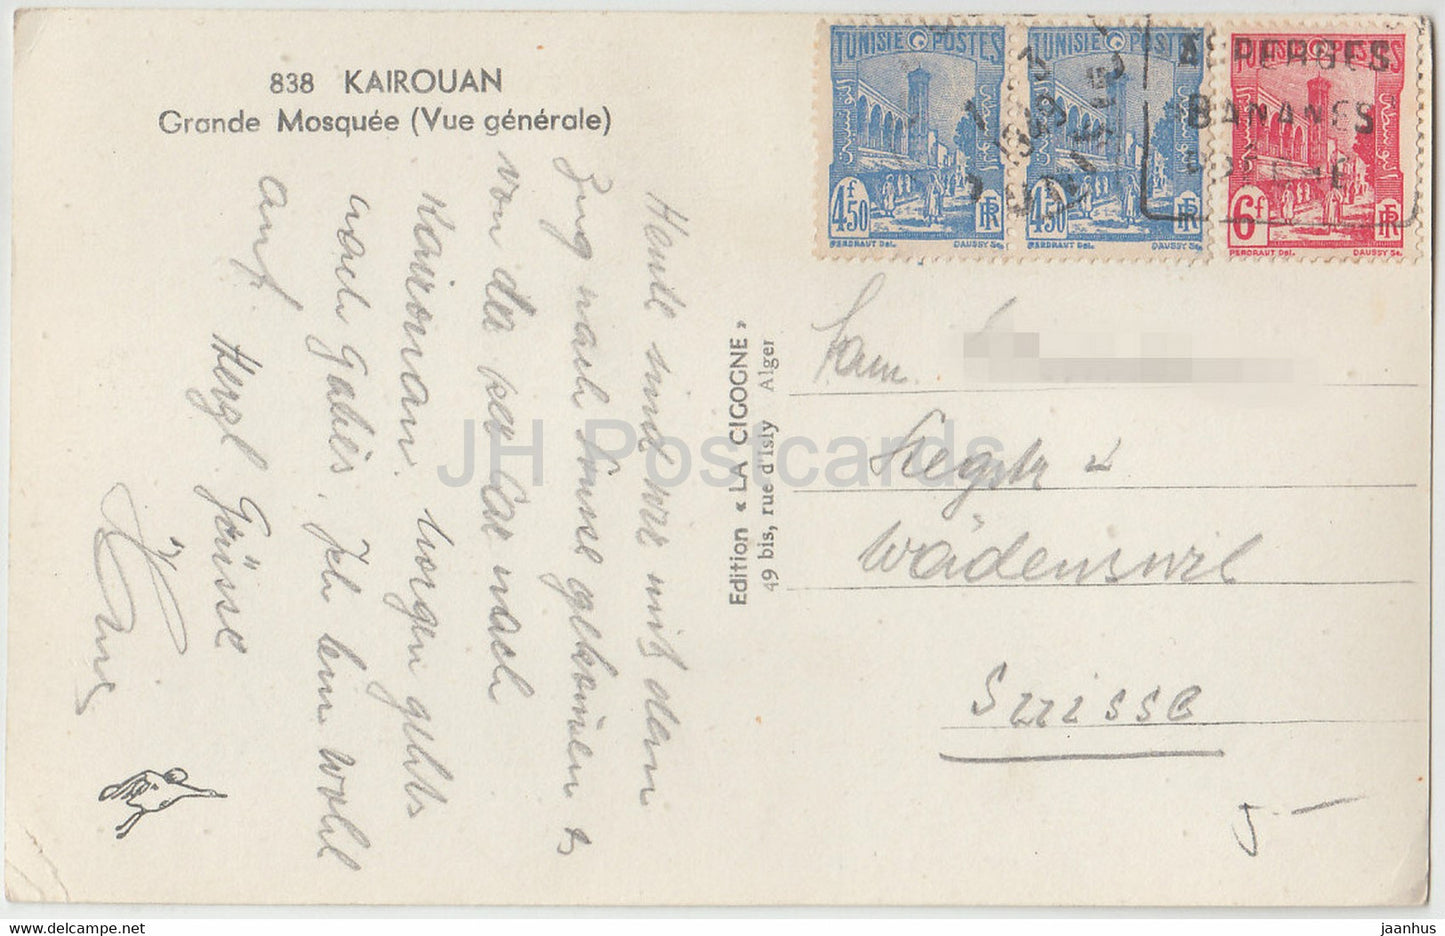 838 KAIROUAN
Grande Mosquée (Vue générale)
Heute sind wir mit dem
Zug nach Sousse gekommen &
von da per Car nach
Kairouan. Morgen gehts
nach Gabès. Ich bin wohl
auf. Herzl Grüsse
Edition « LA CIGOGNE »
49 bis, rue d'Isly Alger
TUNISIE POSTES
4f50
RF
PERDRAUT Del. DAUSSY Sc.
TUNISIE POSTES
4f50
RF
PERDRAUT Del. DAUSSY Sc.
TUNISIE POSTES
6f
RF
PERDRAUT Del. DAUSSY Sc.
1949
ASPERGES
BANANES
Fam.
Wädenswil
Suisse
5.–
JH Postcards
www.delcampe.net
jaanhus